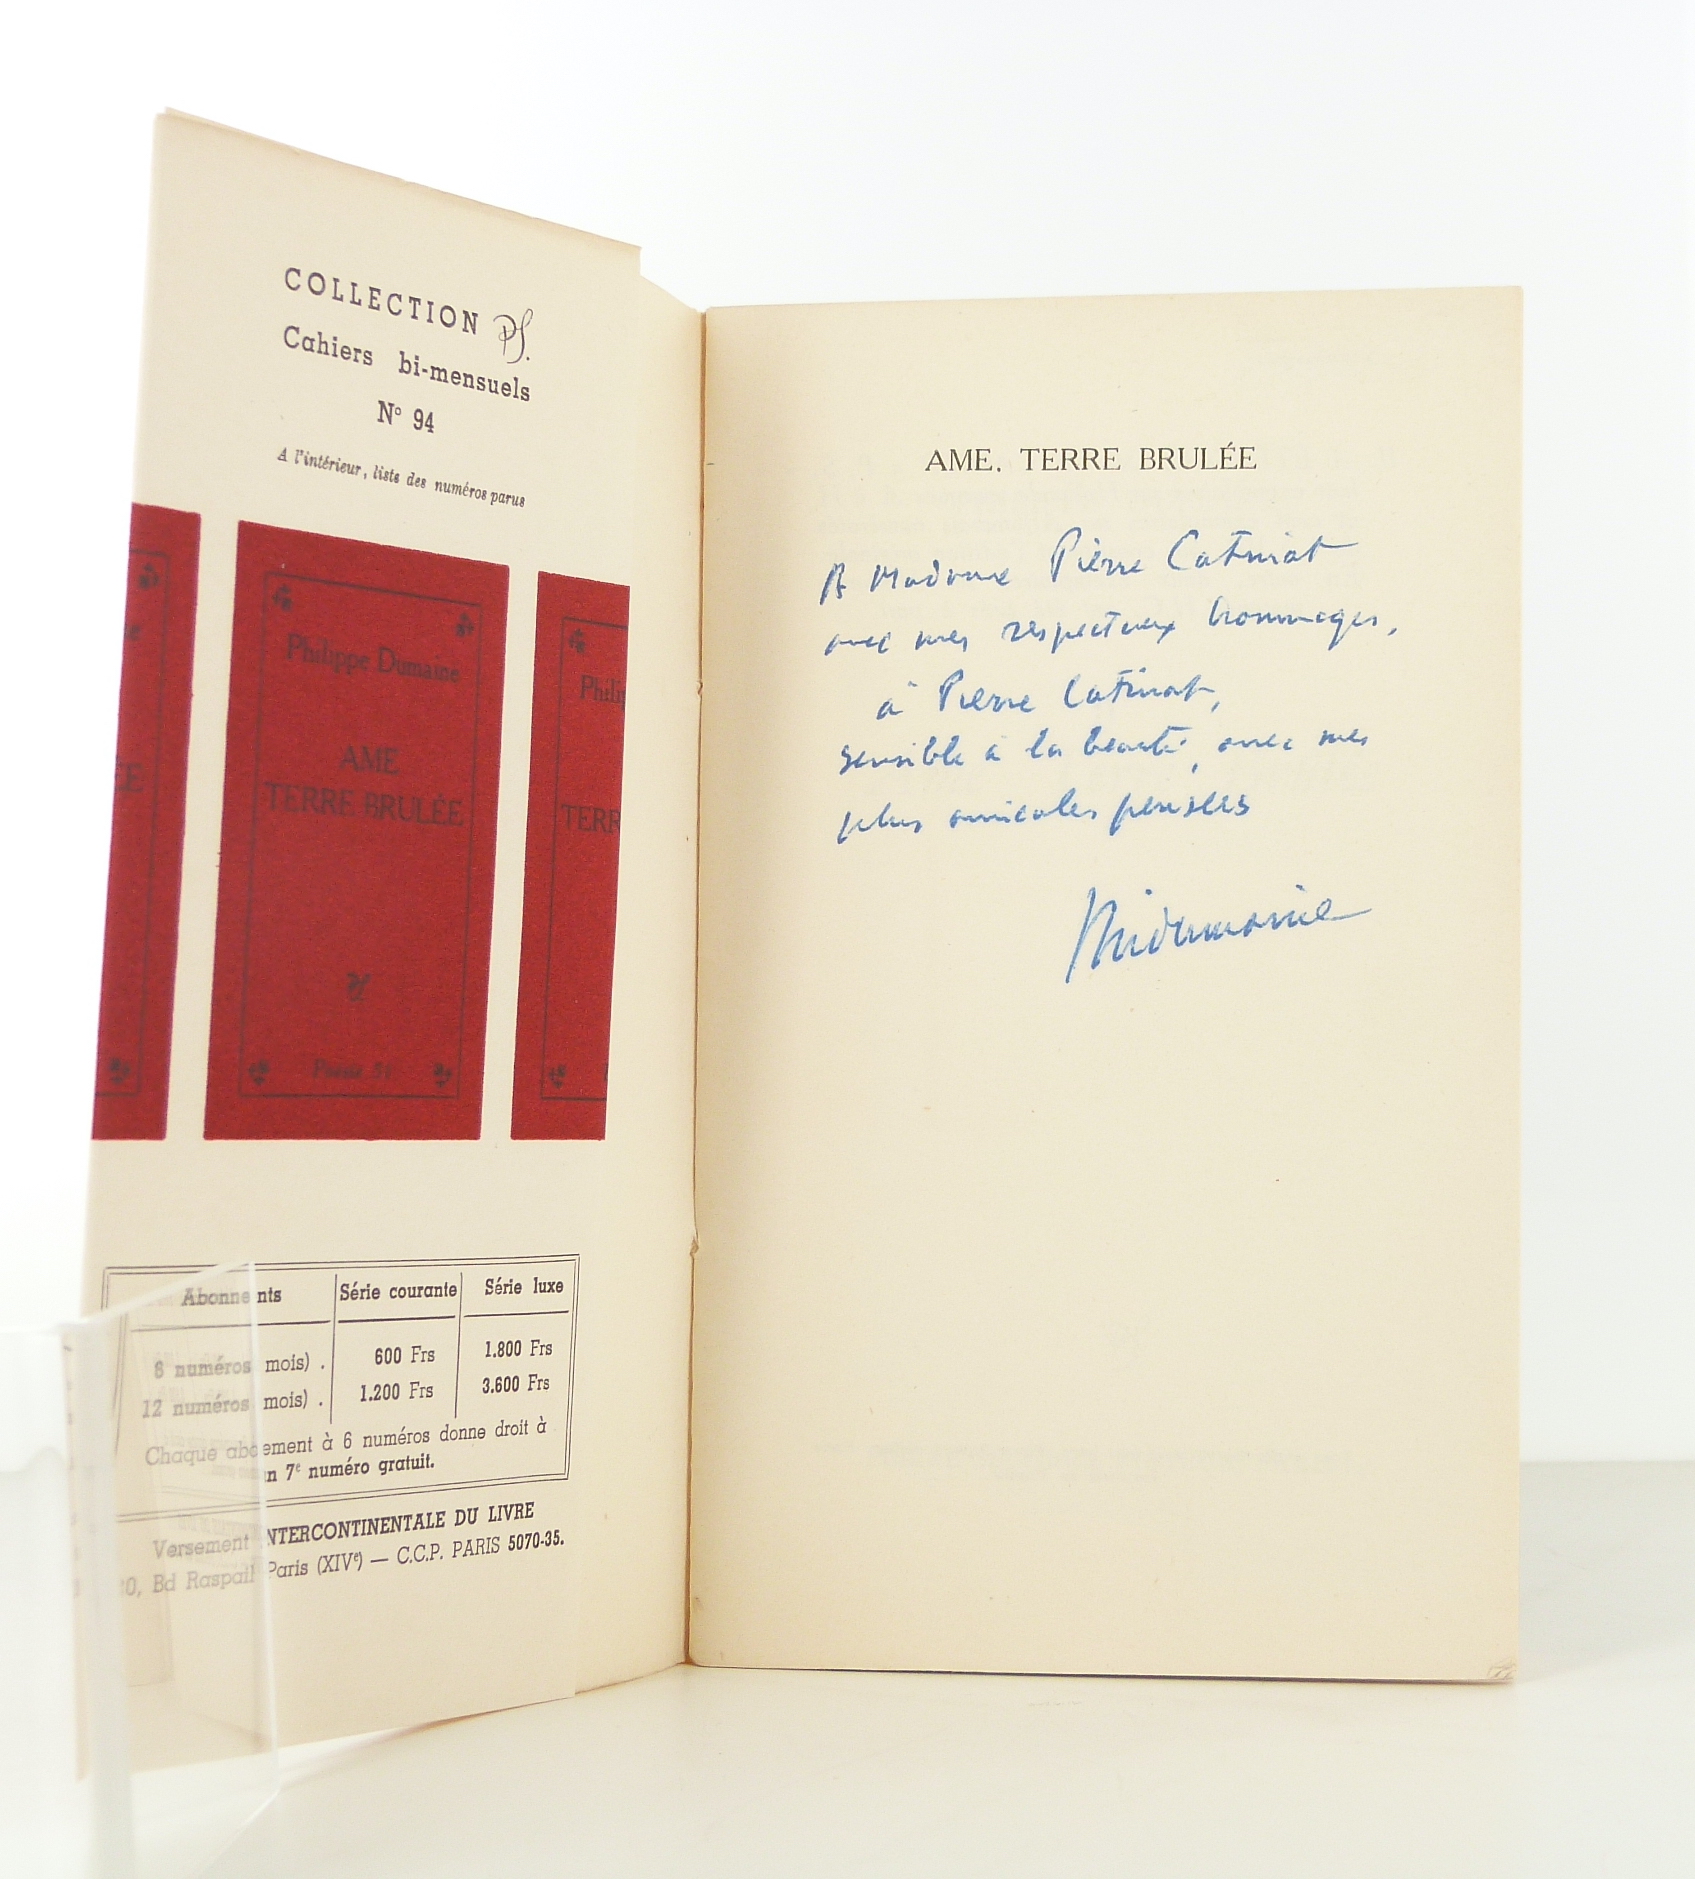 COLLECTION PS.
Cahiers bi-mensuels
N° 94
A l'intérieur, liste des numéros parus
Philippe Dumaine
AME
TERRE BRULÉE
Abonne nts Série courante Série luxe
6 numéros mois) . 600 Frs 1.800 Frs
12 numéros mois) . 1.200 Frs 3.600 Frs
Chaque abonnement à 6 numéros donne droit à
un 7e numéro gratuit.
Versement INTERCONTINENTALE DU LIVRE
Bd Raspail Paris (XIVe) — C.C.P. PARIS 5070-35.
AME, TERRE BRULÉE
A Madame Pierre Catinat
avec mes respectueux hommages,
à Pierre Catinat,
sensible à la beauté, avec mes
plus amicales pensées